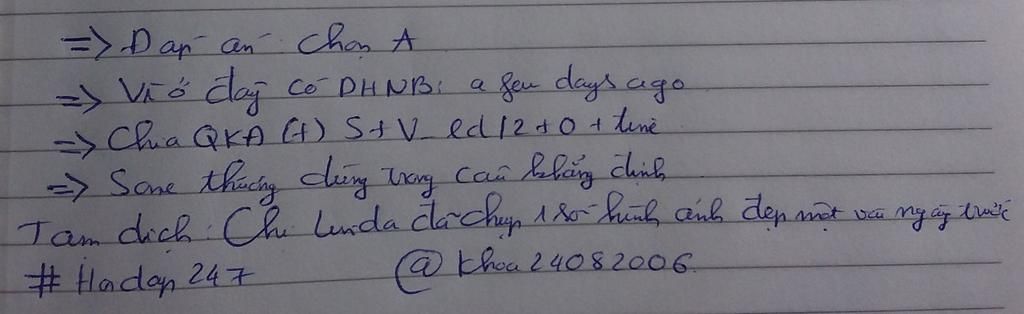 => Đáp án chọn A
=> Vì ở đây có DHNB: a few days ago
=> Chia QKĐ (+) S + V_ed/2 + O + time
=> Some thường dùng trong câu khẳng định
Tạm dịch: Chị Linda đã chụp 1 số hình ảnh đẹp một vài ngày trước
# Hoidap 247 @ khoa24082006.